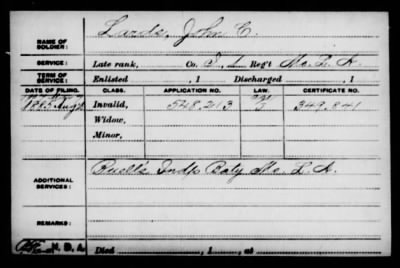 NAME OF SOLDIER: Lurds, John C.
SERVICE: Late rank, Co. S. L. Reg't Mo. L. A.
TERM OF SERVICE: Enlisted , 1 Discharged , 1
DATE OF FILING. CLASS. APPLICATION NO. LAW. CERTIFICATE NO.
1885 Aug Invalid, 548,213 349,841
Widow,
Minor,
ADDITIONAL SERVICES: Buell's Indp Baty Mo. L. A.
REMARKS:
Died , 1 , at